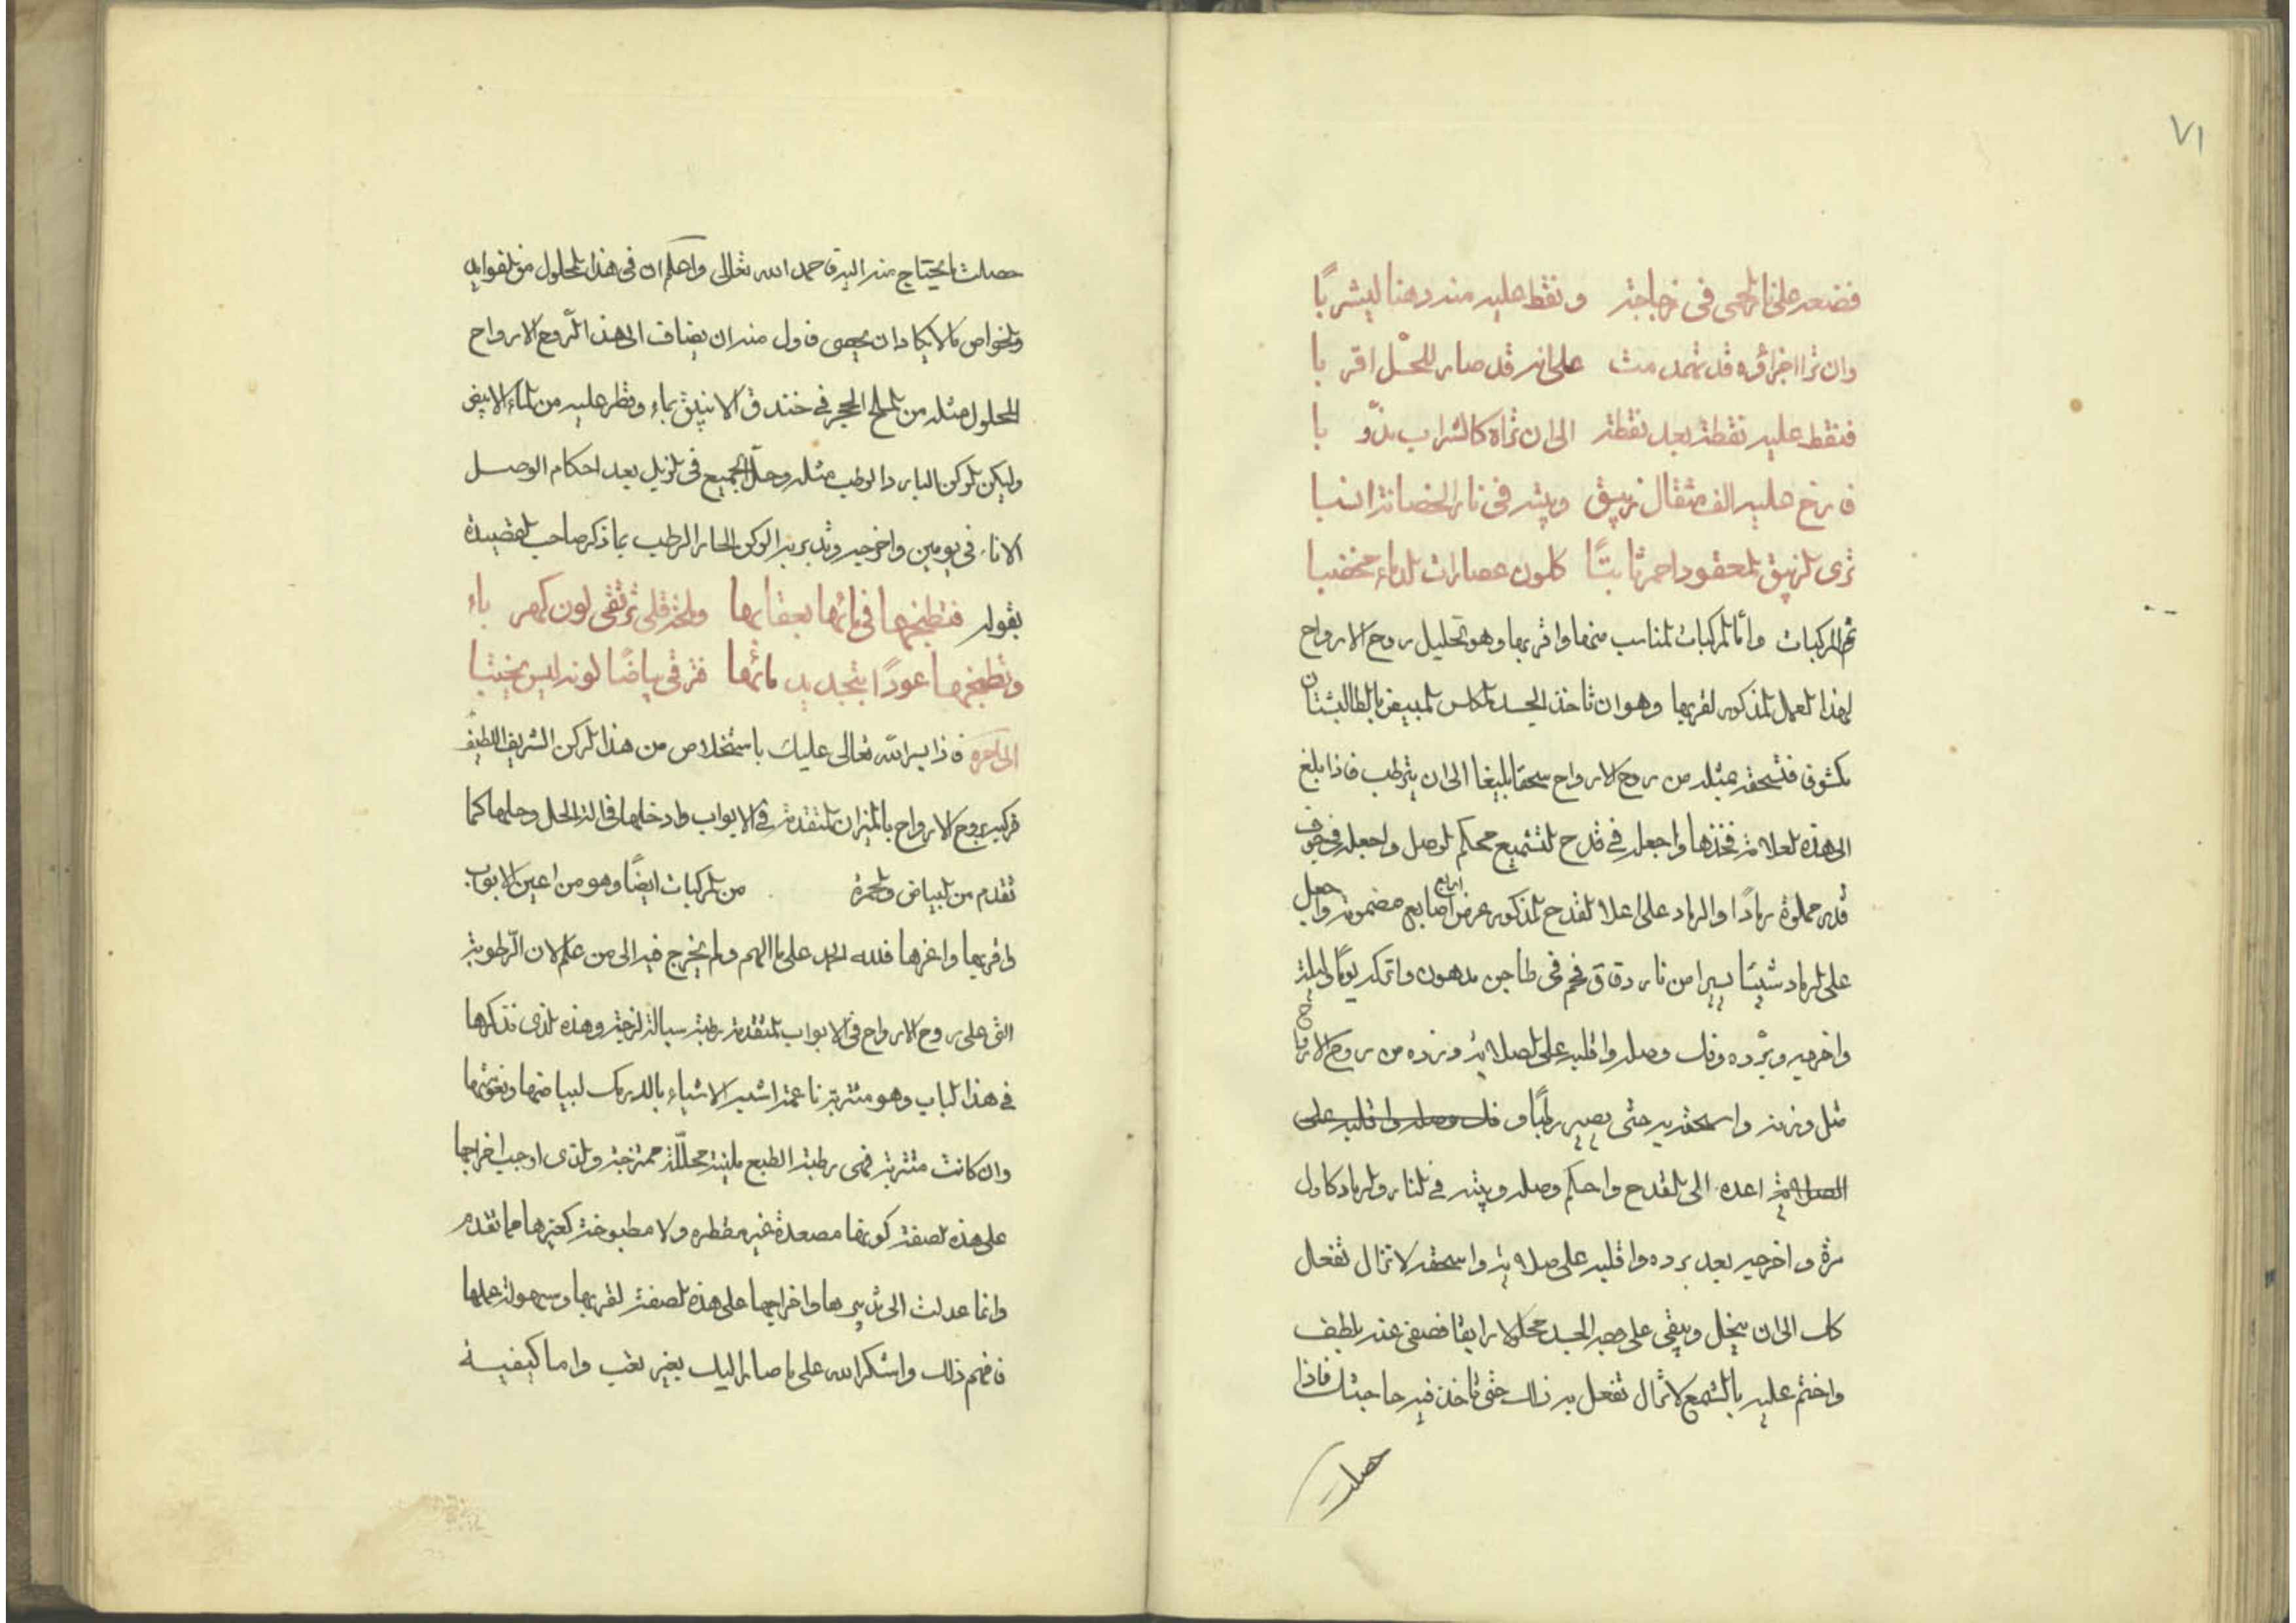 ٧١
فضعه على نار لحمى فى زجاجة ونقط عليه منه دهنا ليشربًا
وان ترا اجزاؤه قد تهمدمت على انه قد صار للحل اقر با
فنقط عليه نقطة بعد نقطة الى ان تراه كالشراب مذوّ با
فارخ عليه الف مثقال زيبق وبيته فى نار الحضانة انسبا
ترى الزيبق المعقود احمر ثابتًا كلون عصارات الدماء مخضبا
تم المركبات وأما المركبات المناسب منها واقربها وهو تحليل روح الارواح
لهذا العمل المذكور لقربها وهو ان تاخذ الجسد المكلس المبيض بالطالبشتان
مكشوف فتسحقه بمثله من روح الارواح سحقا بليغا الى ان يترطب فاذا بلغ
الى هذه العلامة فخذها واجعله فى قدح لتشميع محكم الوصل واجعله فى جوف
قدر مملوة رمادًا والرماد على اعلا القدح المذكور عرض اربع اصابع مضمومة واجعل
على الرماد شيئًا يسيرا من نار دقاق فحم فى طاجن مدهون واتركه يومًا وليلة
واخرجه وبرّده وفك وصله واقلبه على الصلاية وزده من روح الارواح
مثل وزنه واسحقه به حتى يصير رطبًا وفك وصله واقلبه على
الصلاية اعده الى القدح واحكم وصله وبيته فى النار والرماد كاول
مرة واخرجه بعد برده واقلبه على صلاية واسحقه لا تزال تفعل
كذلك الى ان ينحل ويبقى على وجه الجسد محلولا رايقا فصفى عنه بلطف
واختم عليه بالشمع لا تزال تفعل به ذلك حتى تاخذ فيه حاجتك فاذا
حصلت
حصلت ما يحتاج منه اليه فاحمد الله تعالى واعلم ان فى هذا المحلول من الفوايد
والخواص ما لا يكاد ان يحصى فاول منه ان يضاف الى هذا الرّوح الارواح
المحلول مثله من الملح الحجر فى خندق الانبيق بماء وقطر عليه من الماء الابيض
وليكن الركن البارد الرطب مثله وحلّ الجميع فى الزبل بعد احكام الوصل
الاناء فى يومين واخرجه وتدبر به الركن الحار الرطب بما ذكر صاحب القصيدة
بقوله فتطبخها فى مائها بعقارها وبلحد قلى ترتقى لون كهر باء
وتطبخها عودًا بتجديد مائها فترقى بياضًا لونه ليس يختبا
الى آخره فاذا يسر الله تعالى عليك باستخلاص من هذا الركن الشريف اللطيف
فركبه بروح الارواح بالميزان المتقدمة فى الابواب وادخلها فى الة الحل وحلها كما
تقدم من البياض والحمرة من المركبات ايضًا وهو من اعين الابواب
واقربها واعزها فلله الحمد على ما الهم ولم يخرج فيه الى من علم لان الرّطوبة
التى على روح الارواح فى الابواب المتقدمة رطبة سيالة لزجة وهذه الذى نذكرها
فى هذا الباب وهو متتربة ناعمة اشبه الاشياء بالديرمك لبياضها ونعومتها
وان كانت متتربة فهى رطبة الطبع ملينة محلّلة ممتزجة والذى اوجب اخراجها
على هذه الصفة كونها مصعدة غير مقطره ولا مطبوخة كغيرها مما تقدم
وانما عدلت الى تدبيرها واخراجها على هذه الصفة لقربها وسهولة عملها
فافهم ذلك واشكر الله على ما صار اليك بغير تعب واما كيفية